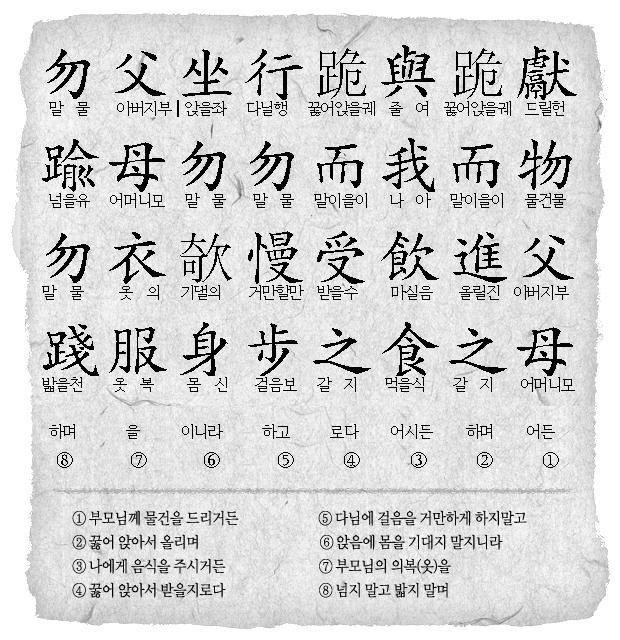 獻 드릴헌 物 물건물 父 아버지부 母 어머니모 어든 ①
跪 꿇어앉을궤 而 말이을이 進 올릴진 之 갈 지 하며 ②
與 줄 여 我 나 아 飮 마실음 食 먹을식 어시든 ③
跪 꿇어앉을궤 而 말이을이 受 받을수 之 갈 지 로다 ④
行 다닐행 勿 말 물 慢 거만할만 步 걸음보 하고 ⑤
坐 앉을좌 勿 말 물 欹 기댈의 身 몸 신 이니라 ⑥
父 아버지부 母 어머니모 衣 옷 의 服 옷 복 을 ⑦
勿 말 물 踰 넘을유 勿 말 물 踐 밟을천 하며 ⑧
① 부모님께 물건을 드리거든
② 꿇어 앉아서 올리며
③ 나에게 음식을 주시거든
④ 꿇어 앉아서 받을지로다
⑤ 다님에 걸음을 거만하게 하지말고
⑥ 앉음에 몸을 기대지 말지니라
⑦ 부모님의 의복(옷)을
⑧ 넘지 말고 밟지 말며